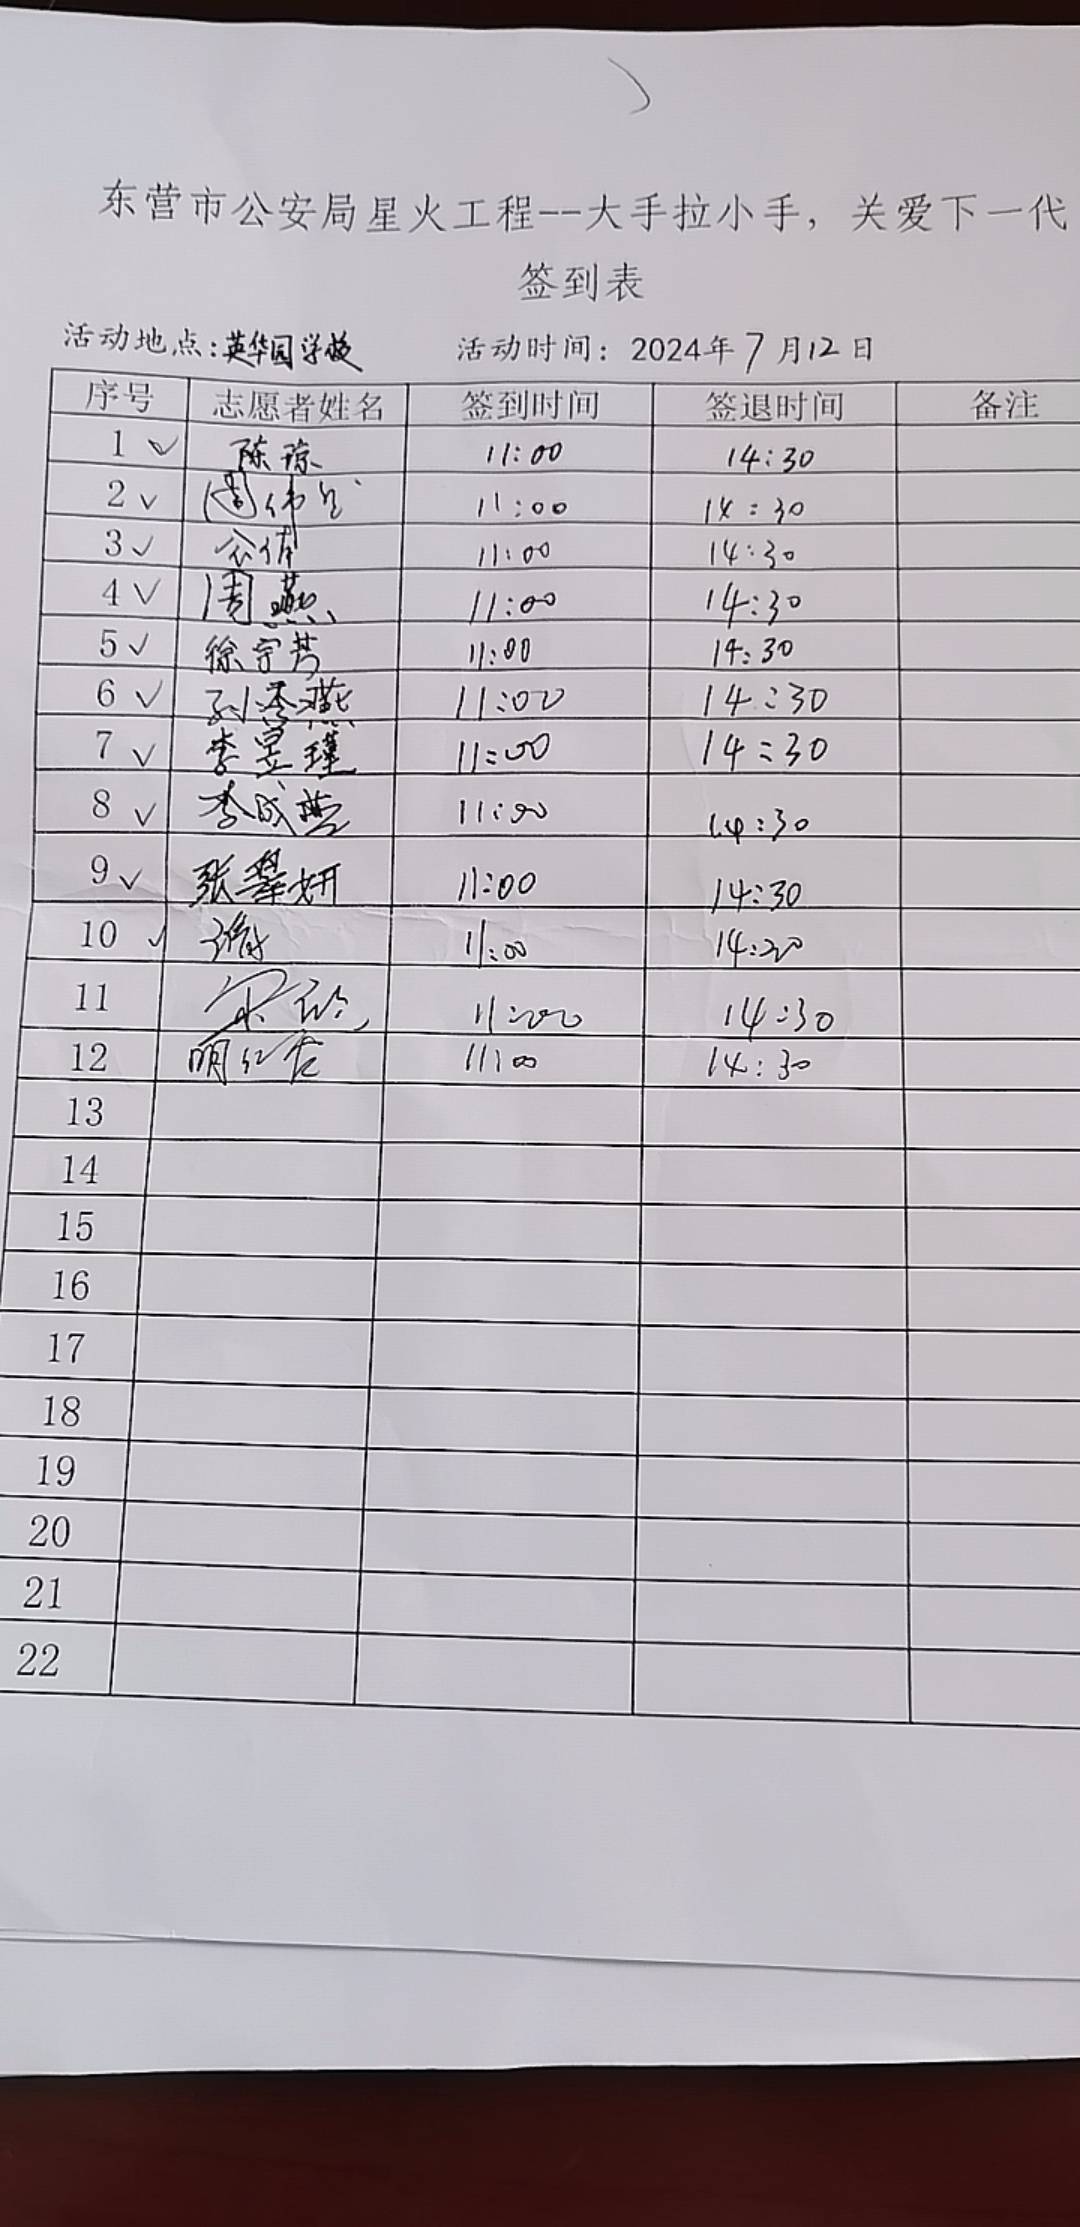 东营市公安局星火工程--大手拉小手，关爱下一代
签到表
活动地点：英华园学校 活动时间：2024年7月12日
序号 志愿者姓名 签到时间 签退时间 备注
1 ✓ 陈琼 11:00 14:30
2 ✓ 周伟 11:00 14:30
3 ✓ 11:00 14:30
4 ✓ 周燕 11:00 14:30
5 ✓ 徐宗芳 11:00 14:30
6 ✓ 孙秀燕 11:00 14:30
7 ✓ 李昱瑾 11:00 14:30
8 ✓ 李成燕 11:00 14:30
9 ✓ 张翠妍 11:00 14:30
10 ✓ 11:00 14:20
11 宋欣 11:00 14:30
12 明红 11:00 14:30
13
14
15
16
17
18
19
20
21
22